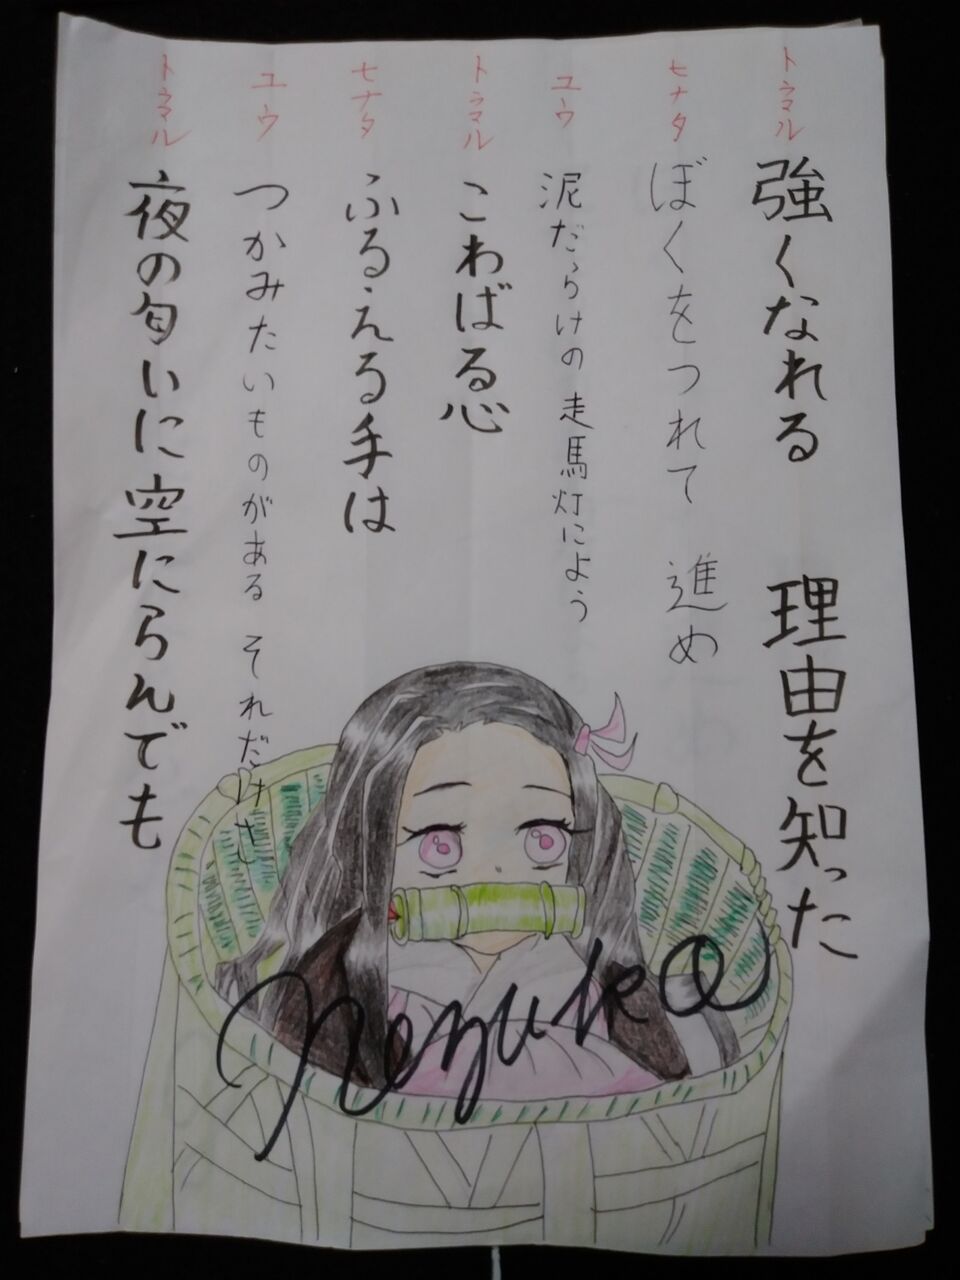 トラマル
強くなれる 理由を知った
ヒナタ
ぼくをつれて 進め
ユウ
泥だらけの走馬灯によう
トラマル
こわばる心
ヒナタ
ふるえる手は
ユウ
つかみたいものがある それだけさ
トラマル
夜の匂いに空にらんでも
Nezuko